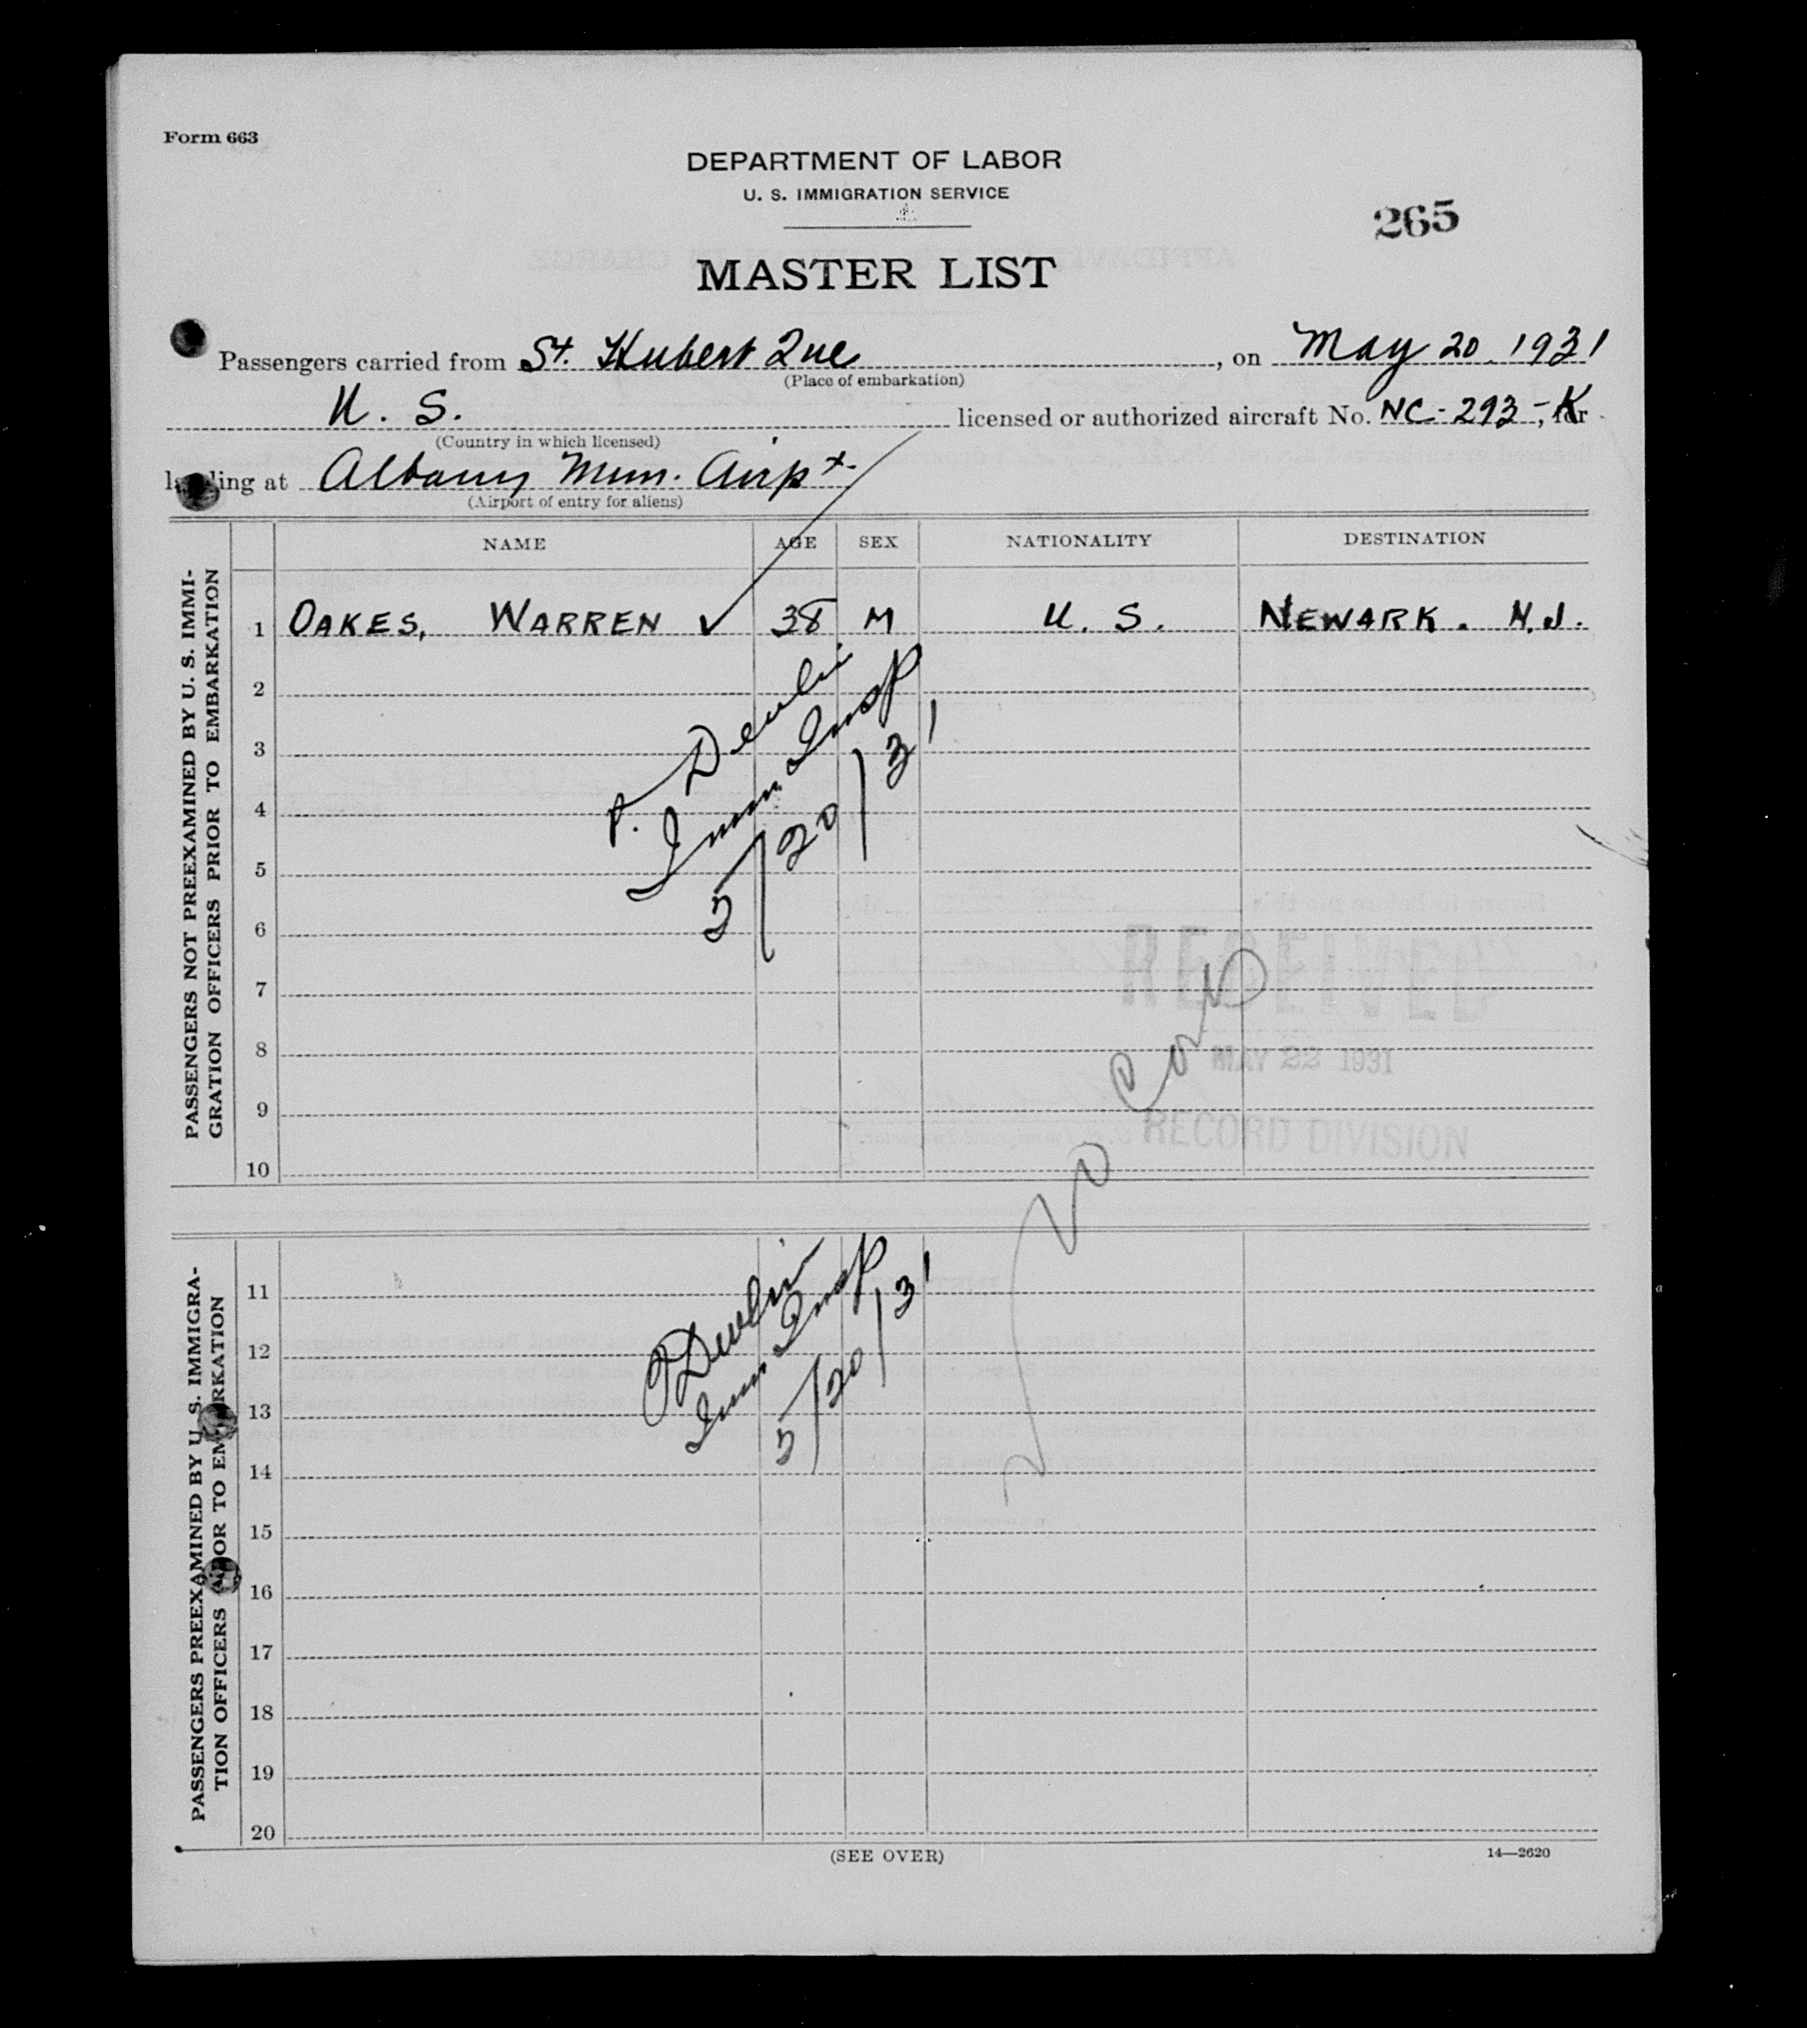 Form 663
DEPARTMENT OF LABOR
U. S. IMMIGRATION SERVICE
265
MASTER LIST
Passengers carried from St. Hubert Que, on May 20, 1931
(Place of embarkation)
U. S. licensed or authorized aircraft No. NC-293-K, for
(Country in which licensed)
landing at Albany Mun. Airpt.
(Airport of entry for aliens)
NAME AGE SEX NATIONALITY DESTINATION
PASSENGERS NOT PREEXAMINED BY U. S. IMMI-
GRATION OFFICERS PRIOR TO EMBARKATION
1 OAKES, WARREN ✓ 38 M U. S. NEWARK. N.J.
2
3
4
5
6
7
8
9
10
P. Devlin
Imm Insp
5/20/31
RECEIVED
MAY 22 1931
RECORD DIVISION
No Card
PASSENGERS PREEXAMINED BY U. S. IMMIGRA-
TION OFFICERS PRIOR TO EMBARKATION
11
12
13
14
15
16
17
18
19
20
P Devlin
Imm Insp
5/20/31
(SEE OVER)
14—2620